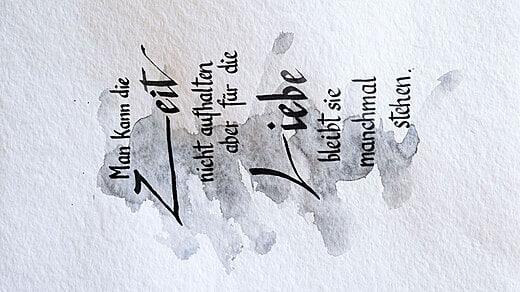 Man kann die
Zeit
nicht aufhalten
aber für die
Liebe
bleibt sie
manchmal
stehen.